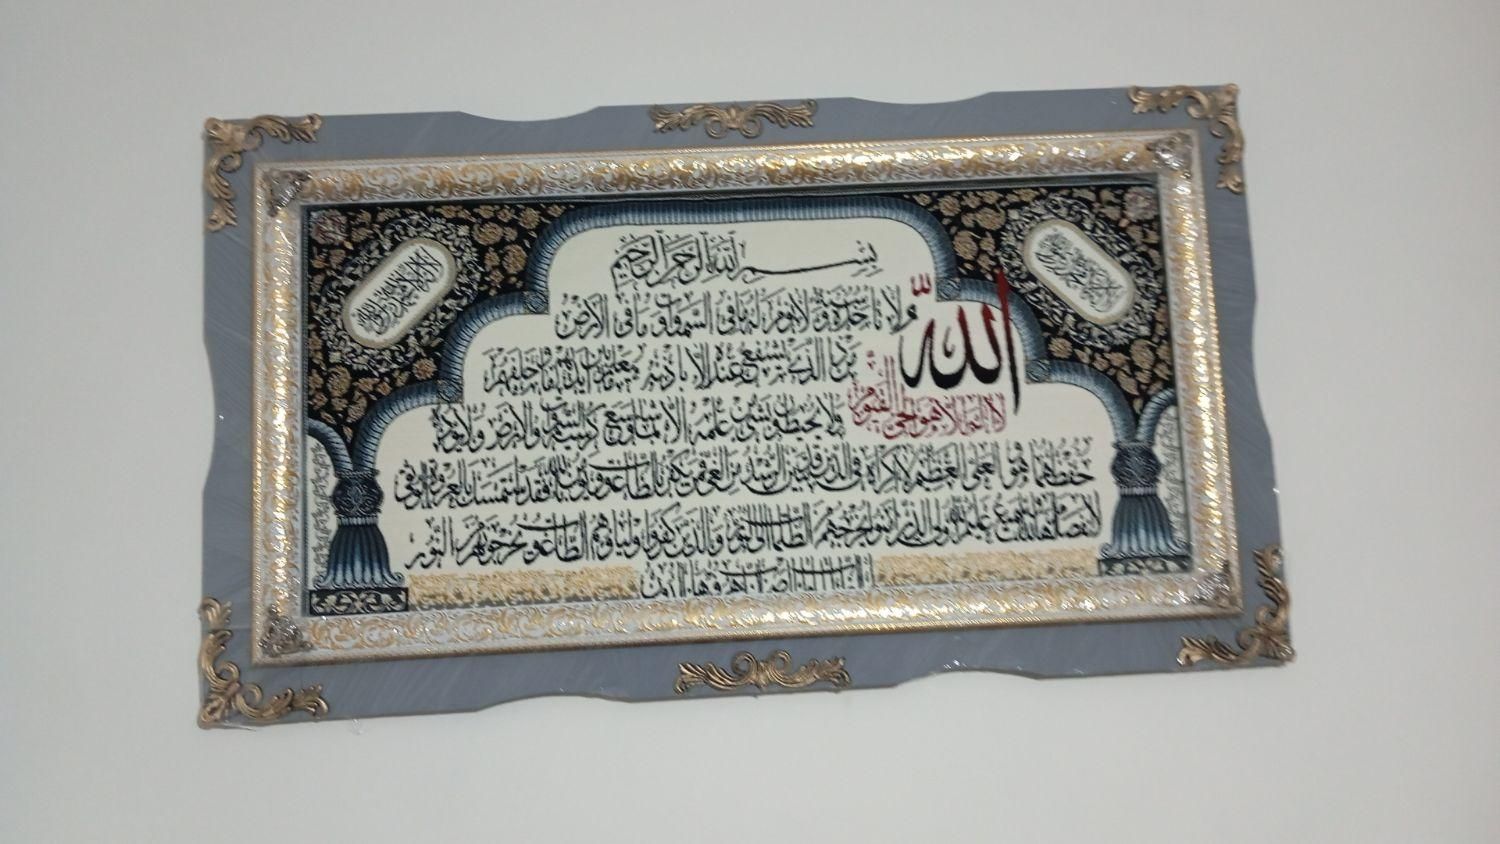 بسم الله الرحمن الرحيم
الله
لا إله إلا هو الحي القيوم
لا تأخذه سنة ولا نوم له ما في السموات وما في الأرض
من ذا الذي يشفع عنده إلا بإذنه يعلم ما بين أيديهم وما خلفهم
ولا يحيطون بشيء من علمه إلا بما شاء وسع كرسيه السموات والأرض ولا يؤده
حفظهما وهو العلي العظيم لا إكراه في الدين قد تبين الرشد من الغي فمن يكفر بالطاغوت ويؤمن بالله فقد استمسك بالعروة الوثقى
لا انفصام لها والله سميع عليم الله ولي الذين آمنوا يخرجهم من الظلمات إلى النور والذين كفروا أولياؤهم الطاغوت يخرجونهم من النور